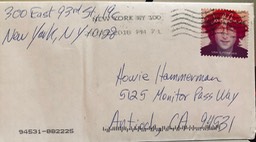 300 East 93rd St.
New York, NY 10128
NEW YORK NY 100
2020 PM
Howie Hammerman
5125 Monitor Pass Way
Antioch, CA 94531
94531-882225